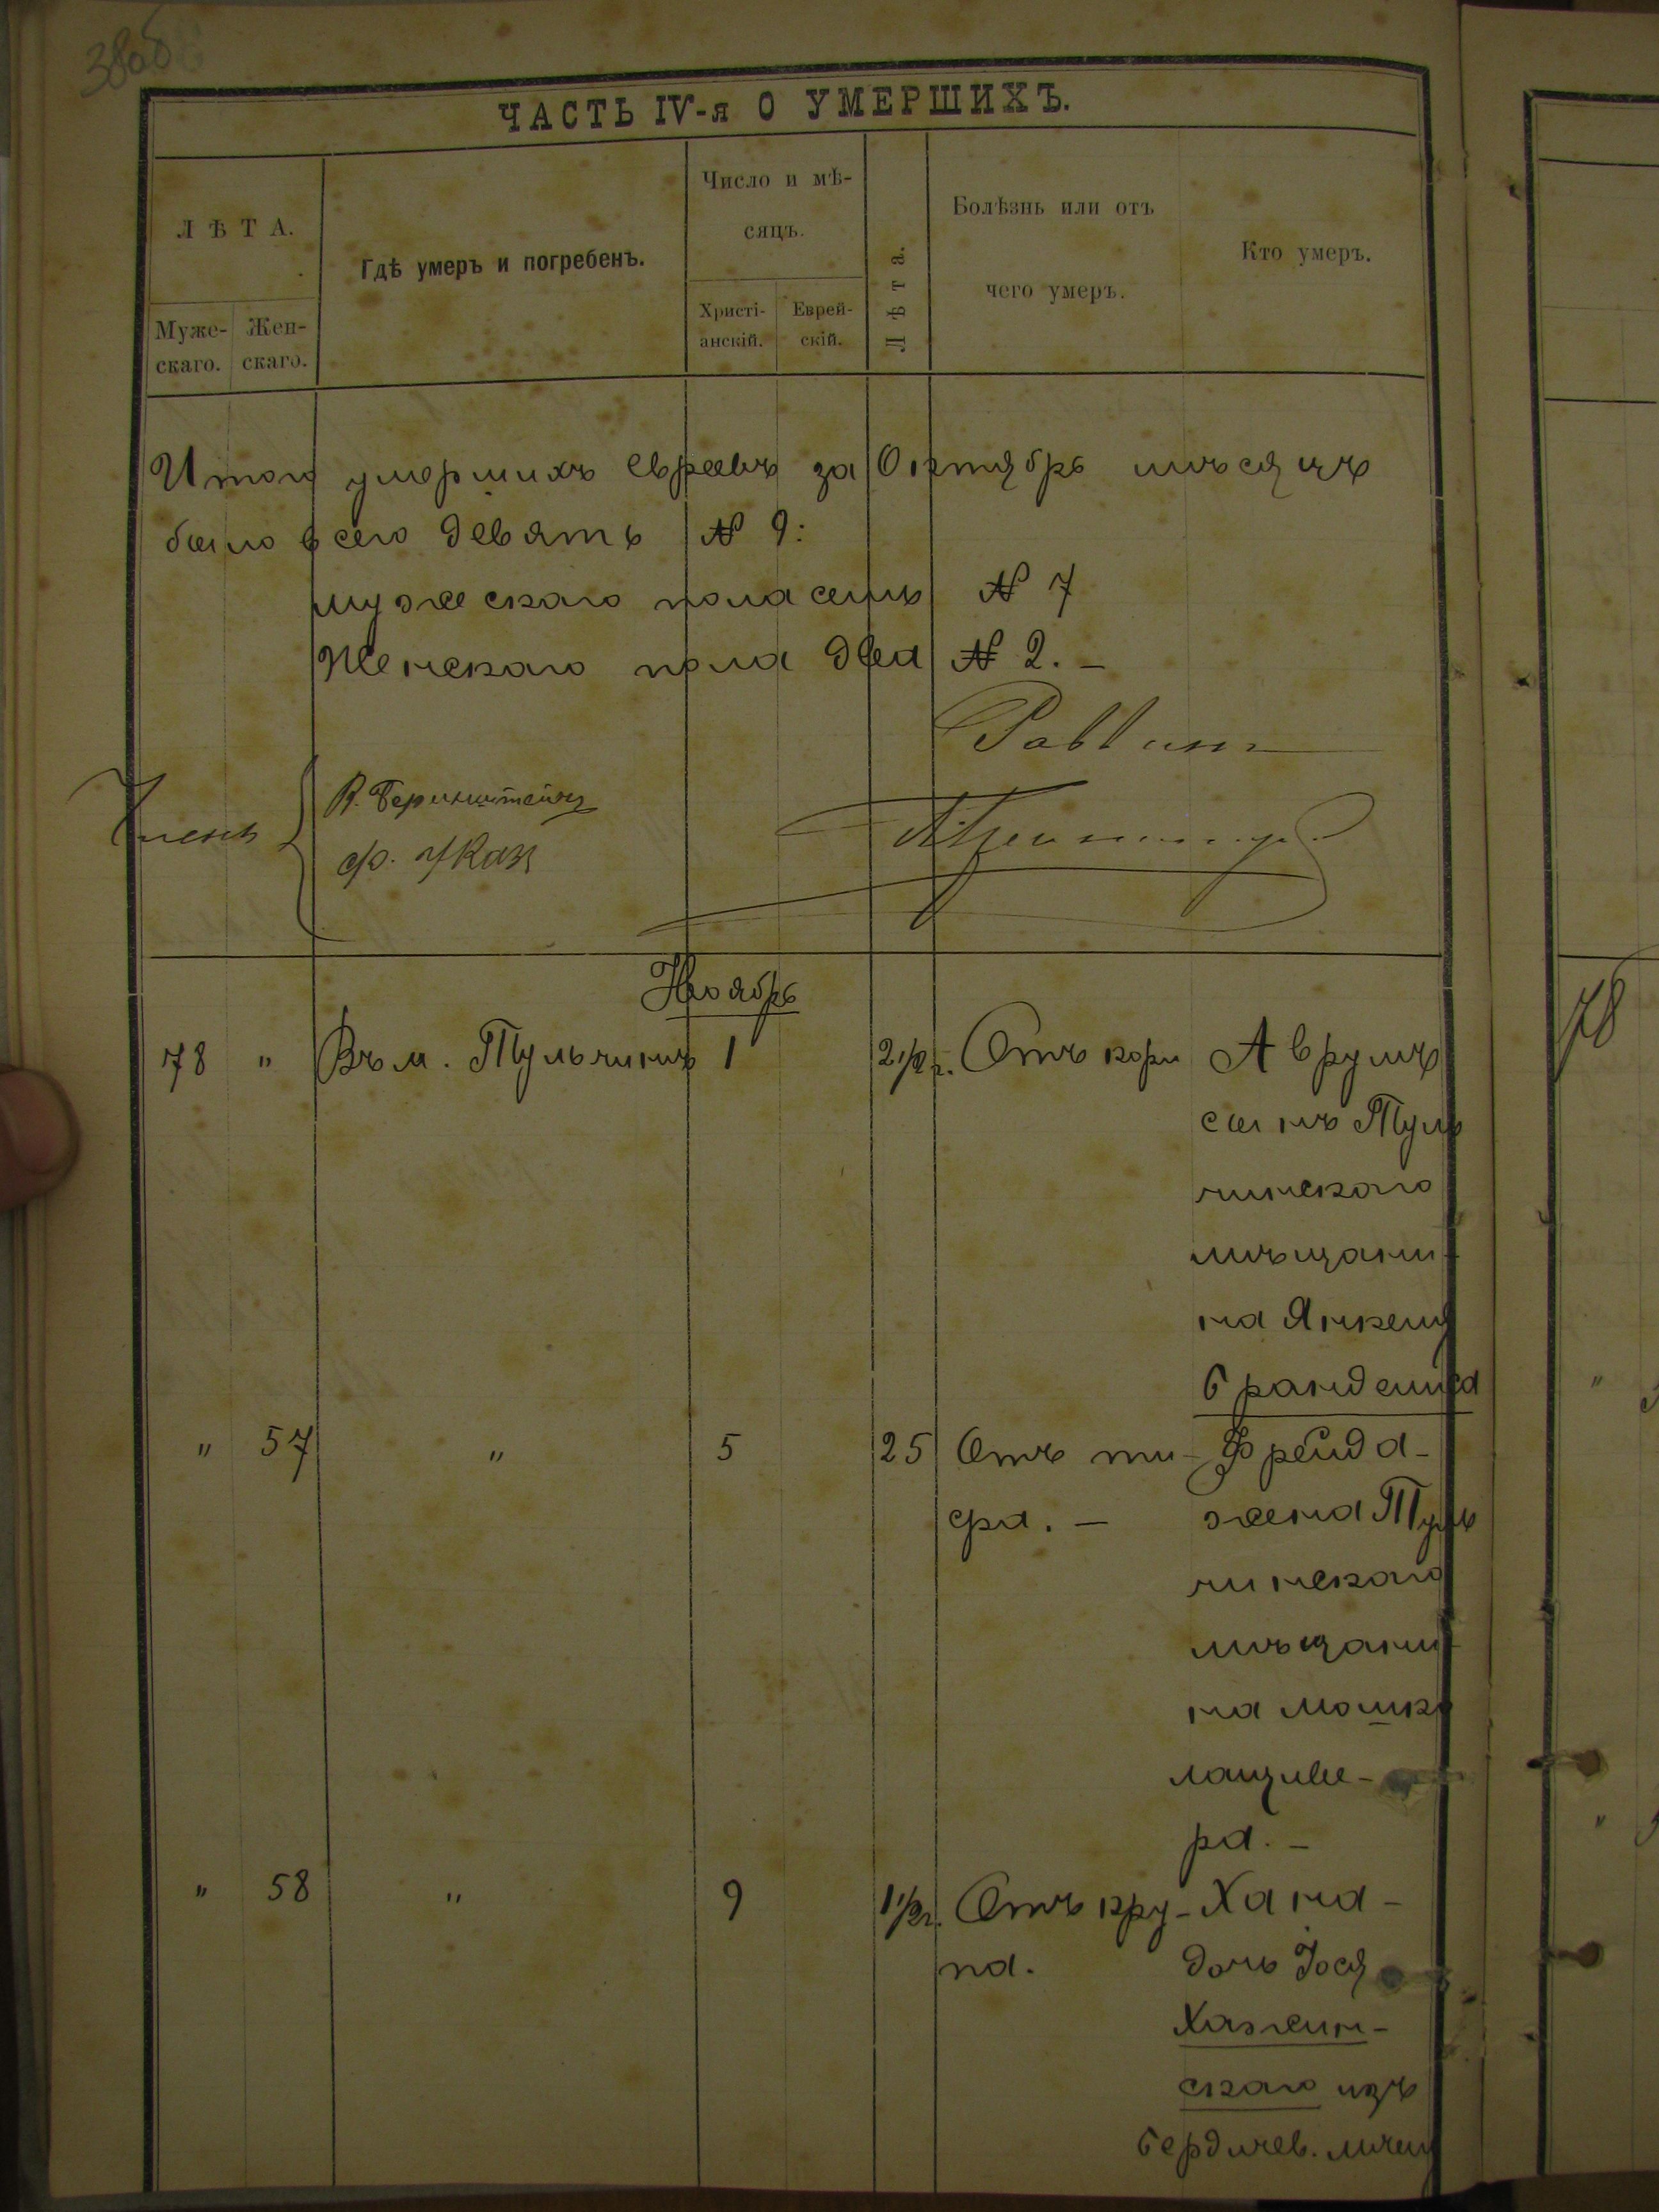 38об
ЧАСТЬ IV-я О УМЕРШИХЪ.
ЛѢТА.
Муже-
скаго.
Жен-
скаго.
Гдѣ умеръ и погребенъ.
Число и мѣ-
сяцъ.
Христі-
анскій.
Еврей-
скій.
Лѣта.
Болѣзнь или отъ
чего умеръ.
Кто умеръ.
Итого умершихъ евреевъ за Октябрь мѣсяцъ
было всего девять № 9:
мужескаго пола семь № 7
Женскаго пола два № 2. –
Раввинъ
Члены
В. Бернштейнъ
Ноябрь
78 " Въ м. Тульчинѣ 1 2 1/2 г. Отъ кори Аврумъ
сынъ Туль
чинскаго
мѣщани-
на Янкеля
Брандешса
" 57 " 5 25 Отъ ти- Фрейда-
фа. – жена Туль
чинскаго
мѣщани-
на Мошко
Лациве-
ра. –
" 58 " 9 1 1/2 г. Отъ кру- Хана-
па. дочь Іося
Хажин-
скаго изъ
Бердичев. мѣщ
78
"
"